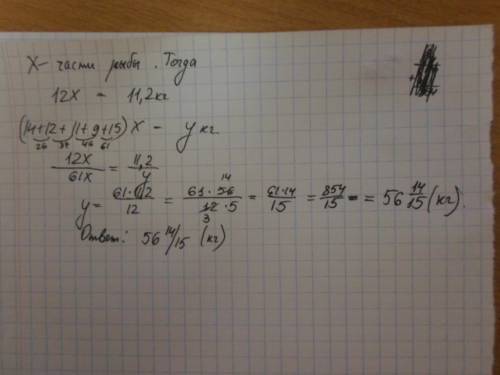 X - части рыбы. Тогда
12X - 11,2кг
(14+12+11+9+15)X - y кг
26 37 46 61
12X/61X = 11,2/y
y = 61·11,2/12 = 61·56/12·5 = 61·14/15 = 854/15 = = 56 14/15 (кг).
14
3
Ответ: 56 14/15 (кг)